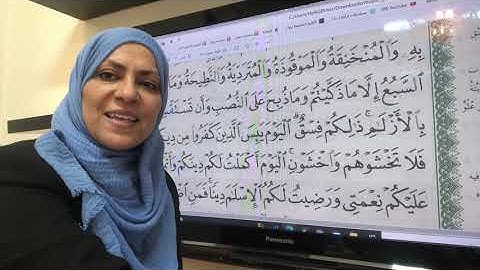 بِهِۦ وَٱلْمُنْخَنِقَةُ وَٱلْمَوْقُوذَةُ وَٱلْمُتَرَدِّيَةُ وَٱلنَّطِيحَةُ وَمَآ
ٱلسَّبُعُ إِلَّا مَا ذَكَّيْتُمْ وَمَا ذُبِحَ عَلَى ٱلنُّصُبِ وَأَن تَسْتَقْسِ
بِٱلْأَزْلَٰمِ ۚ ذَٰلِكُمْ فِسْقٌ ۗ ٱلْيَوْمَ يَئِسَ ٱلَّذِينَ كَفَرُوا۟ مِن دِينِ
فَلَا تَخْشَوْهُمْ وَٱخْشَوْنِ ۚ ٱلْيَوْمَ أَكْمَلْتُ لَكُمْ دِينَكُمْ وَأَتْ
عَلَيْكُمْ نِعْمَتِى وَرَضِيتُ لَكُمُ ٱلْإِسْلَٰمَ دِينًا ۚ فَمَنِ ٱضْ
Panasonic